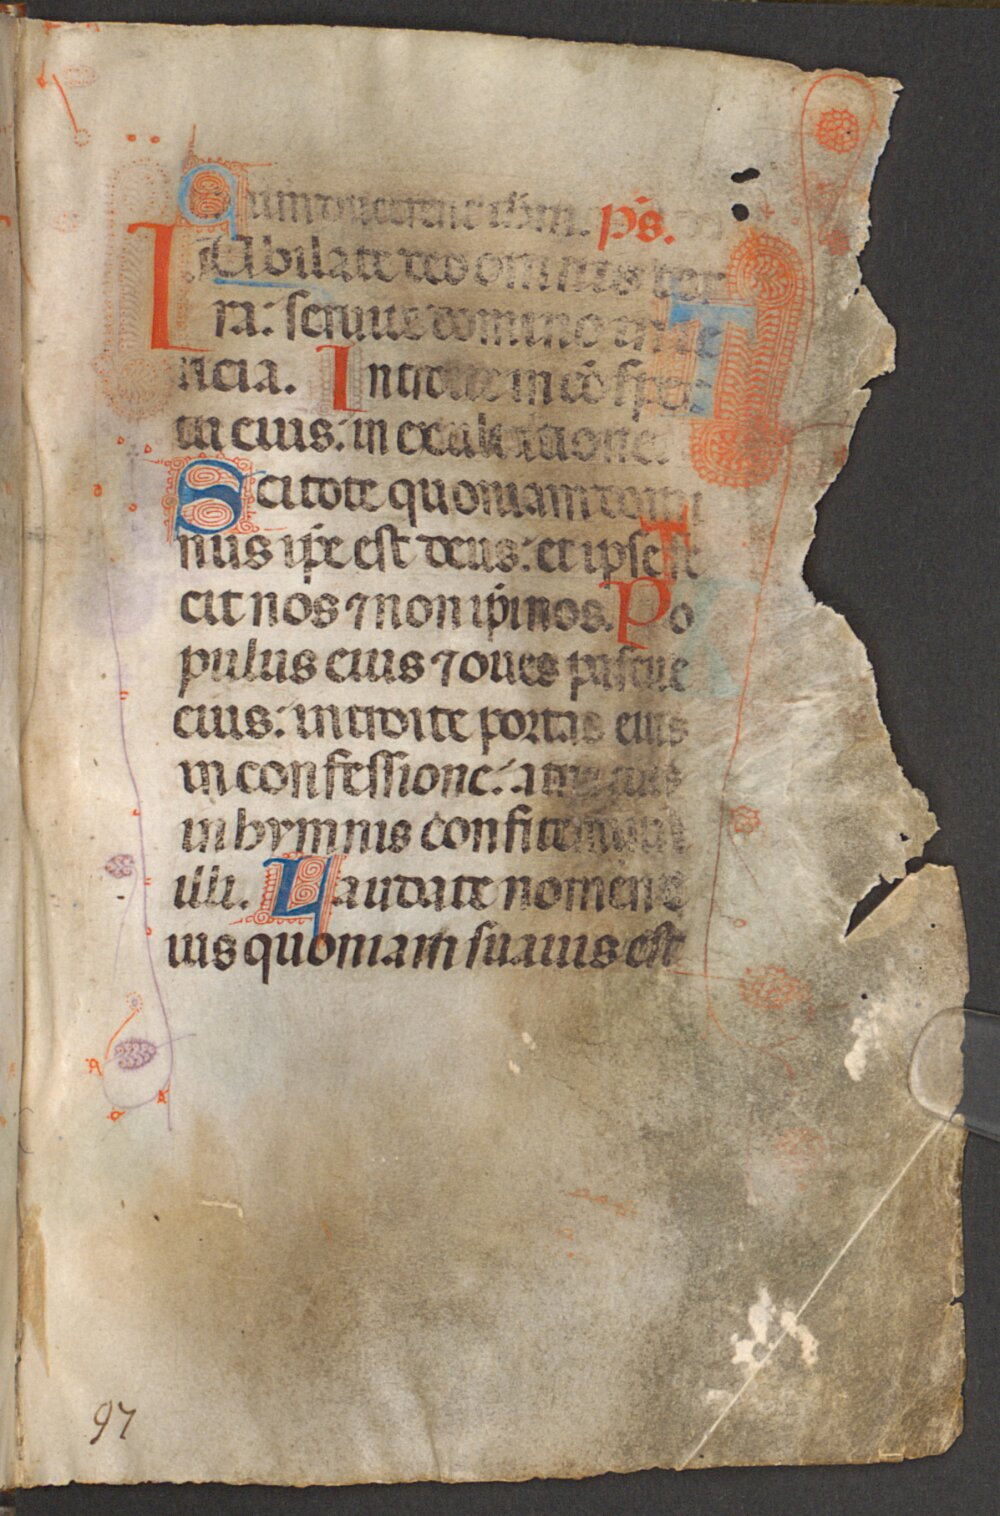 ps.
IUbilate deo omnis ter
ra: seruite domino in le
ticia. Introite in cōspec
tu eius: in exultatione.
Scitote quoniam domi
nus ip̄e est deus: et ipse fe
cit nos ⁊ non ip̄i nos. Po
pulus eius ⁊ oues pascue
eius: introite portas eius
in confessione: atria eius
in hymnis confitemini
illi. Laudate nomen e
ius quoniam suauis est
97